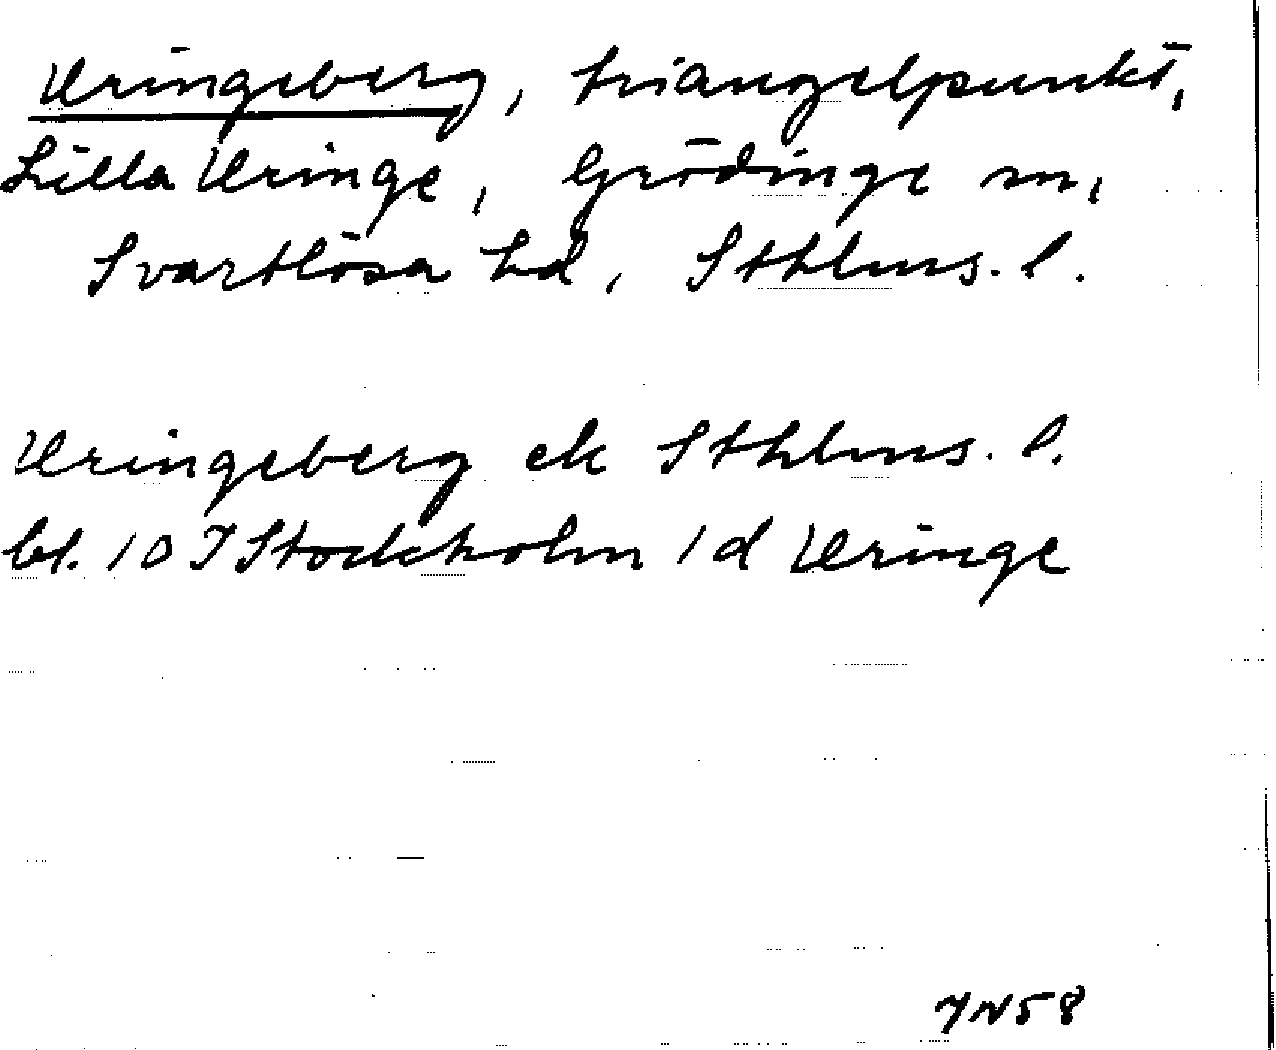 Uringeberg, triangelpunkt,
Lilla Uringe, Grödinge sn,
Svartlösa hd, Sthlms. l.
Uringeberg ek Sthlms. l.
bl. 10 I Stockholm 1 d Uringe